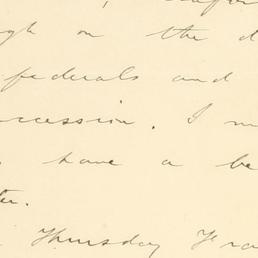 gh on the d
federals and
ccession. I m
have a be
ter.
Thursday Fra